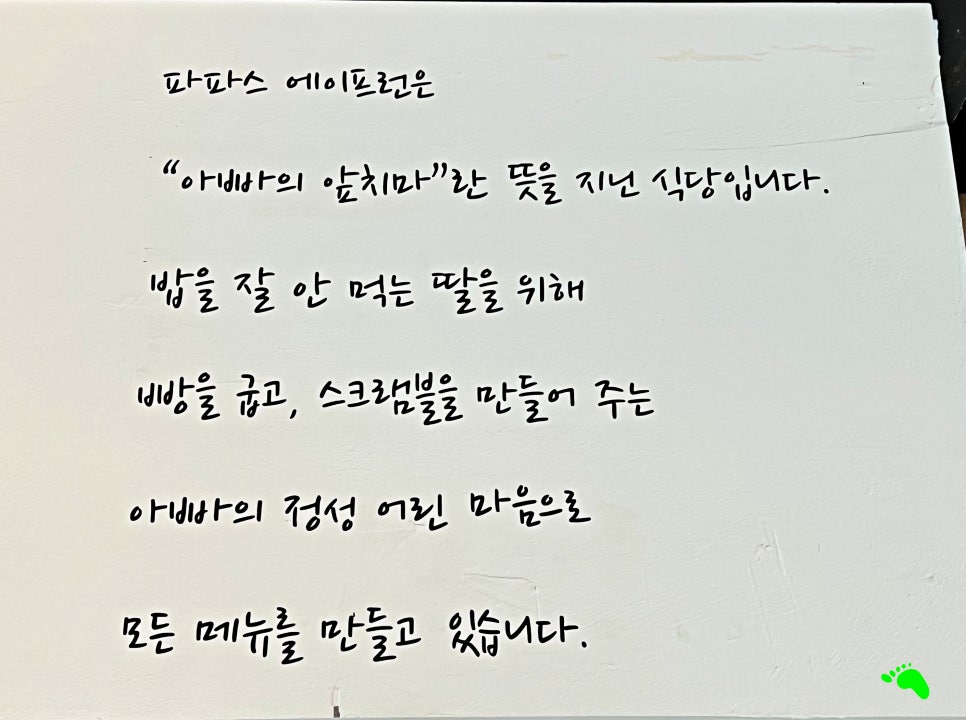 파파스 에이프런은
“아빠의 앞치마”란 뜻을 지닌 식당입니다.
밥을 잘 안 먹는 딸을 위해
빵을 굽고, 스크램블을 만들어 주는
아빠의 정성 어린 마음으로
모든 메뉴를 만들고 있습니다.